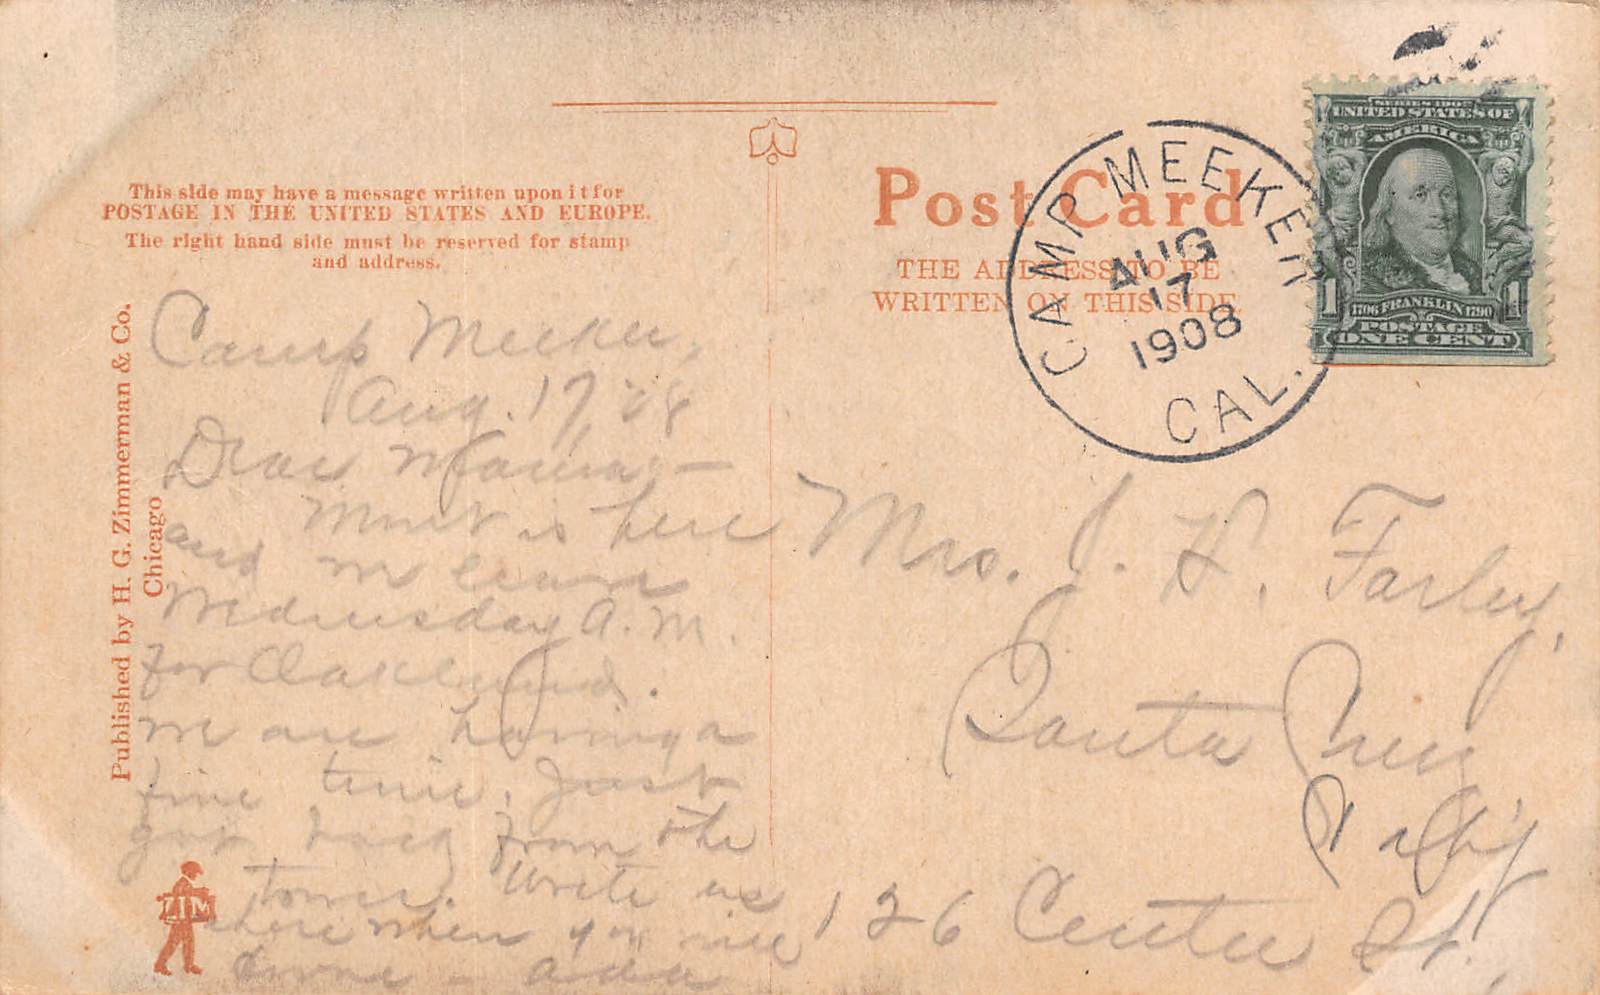 This side may have a message written upon it for
POSTAGE IN THE UNITED STATES AND EUROPE.
The right hand side must be reserved for stamp
and address.
Published by H. G. Zimmerman & Co.
Chicago
Camp Meeker,
Aug. 17, '08
Dear Mama, —
Mort is here
and we leave
Wednesday A.M.
for Oakland.
We are having a
fine time. Just
got back from the
tower. Write us
there when you will
come — Ada
ZIM
Post Card
THE ADDRESS TO BE
WRITTEN ON THIS SIDE
CAMP MEEKER
AUG
17
1908
CAL.
SERIES 1902
UNITED STATES OF
AMERICA
1 1706 FRANKLIN 1790 1
POSTAGE
ONE CENT
Mrs. J. H. Farley,
Santa Cruz
Calif
126 Center St.,